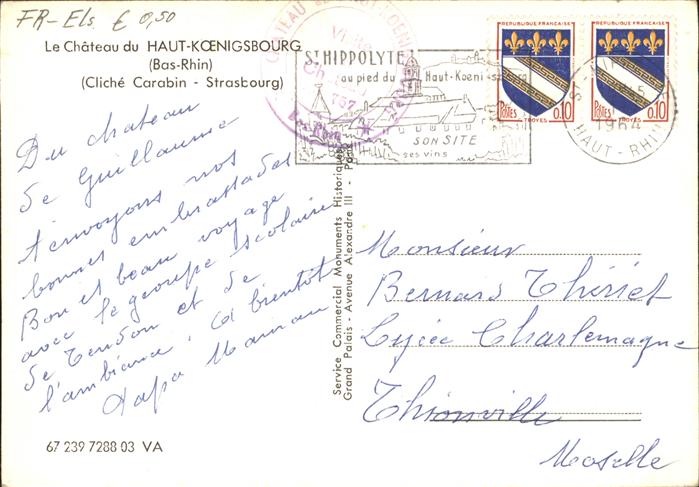 FR-Els € 0,50
Le Château du HAUT-KŒNIGSBOURG
(Bas-Rhin)
(Cliché Carabin - Strasbourg)
St HIPPOLYTE
au pied du Haut-Koenigsbourg
SON SITE
ses vins
CHATEAU
767
Bas-Rhin
RÉPUBLIQUE FRANÇAISE
POSTES 0,10
TROYES
RÉPUBLIQUE FRANÇAISE
POSTES 0,10
TROYES
1964
HAUT-RHIN
Du chateau
de Guillaume
t'envoyons nos
bonnes embrassades
Bon et beau voyage
avec le groupe scolaire
de Tendon et de
l'ambiance. A bientôt
Papa Maman
Service Commercial Monuments Historiques
Grand Palais - Avenue Alexandre III - Paris
Monsieur
Bernard Thiriet
Lycée Charlemagne
Thionville
Moselle
67 239 7288 03 VA